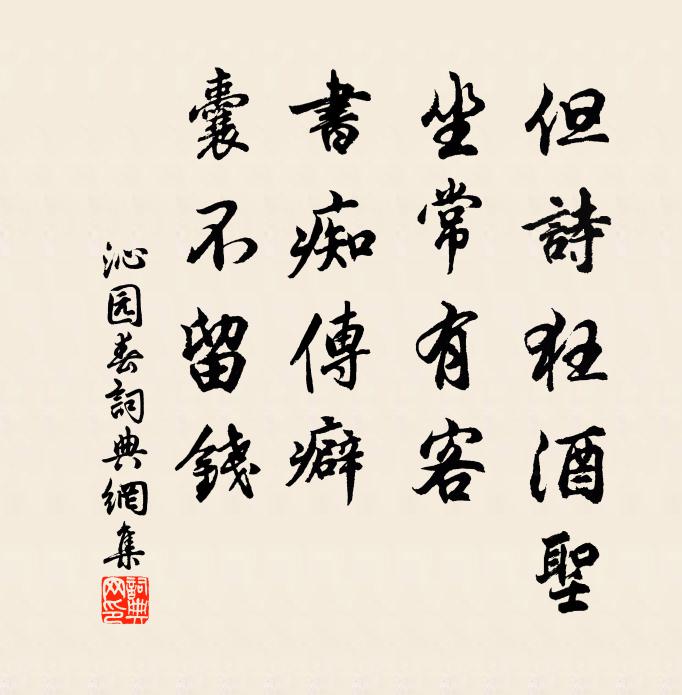 但詩狂酒聖
坐常有客
書痴傳癖
囊不留錢
沁园春詞典網集
詞典网印